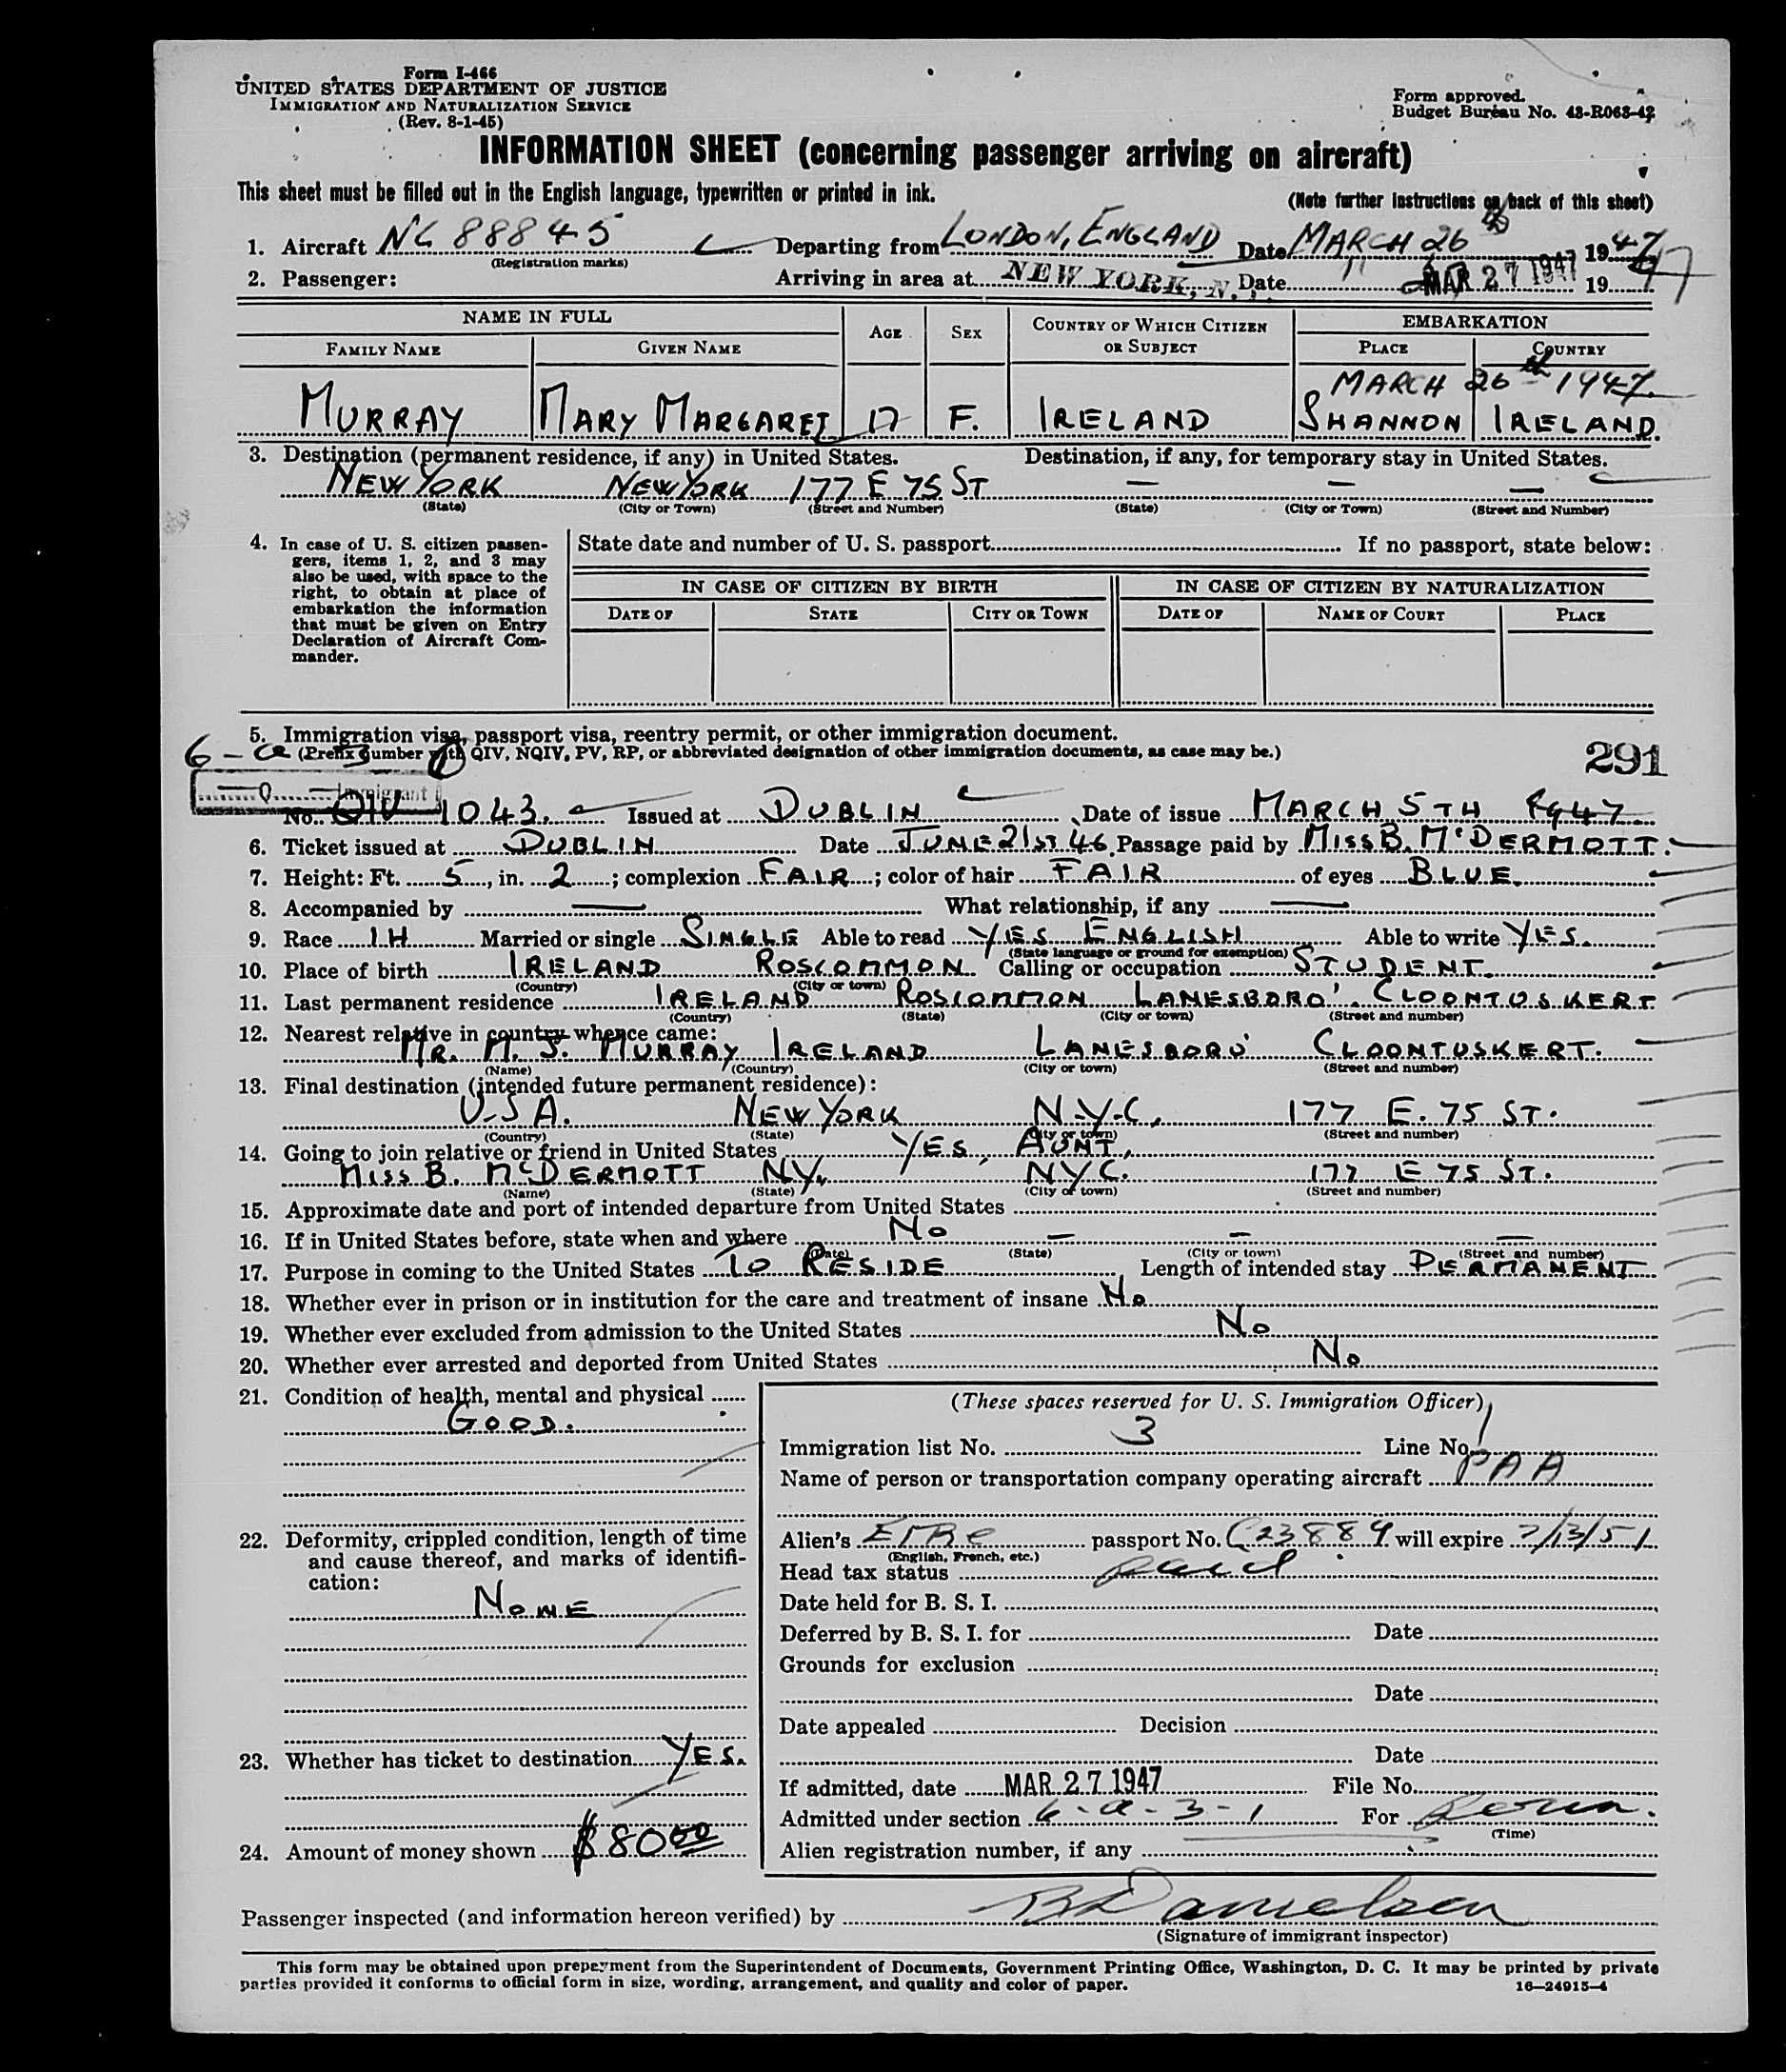 Form I-466
UNITED STATES DEPARTMENT OF JUSTICE
IMMIGRATION AND NATURALIZATION SERVICE
(Rev. 8-1-45)
Form approved.
Budget Bureau No. 43-R063-42
INFORMATION SHEET (concerning passenger arriving on aircraft)
This sheet must be filled out in the English language, typewritten or printed in ink.
(Note further instructions on back of this sheet)
1. Aircraft NC 88845 Departing from LONDON, ENGLAND Date MARCH 26 1947
(Registration marks)
2. Passenger: Arriving in area at NEW YORK, N. Y. Date MAR 27 1947 19 47
NAME IN FULL AGE SEX COUNTRY OF WHICH CITIZEN OR SUBJECT EMBARKATION
FAMILY NAME GIVEN NAME PLACE COUNTRY
MARCH 26th 1947.
MURRAY MARY MARGARET 17 F. IRELAND SHANNON IRELAND.
3. Destination (permanent residence, if any) in United States. Destination, if any, for temporary stay in United States.
NEW YORK NEW YORK 177 E 75 ST — — —
(State) (City or Town) (Street and Number) (State) (City or Town) (Street and Number)
4. In case of U. S. citizen passen-
gers, items 1, 2, and 3 may
also be used, with space to the
right, to obtain at place of
embarkation the information
that must be given on Entry
Declaration of Aircraft Com-
mander.
State date and number of U. S. passport If no passport, state below:
IN CASE OF CITIZEN BY BIRTH IN CASE OF CITIZEN BY NATURALIZATION
DATE OF STATE CITY OR TOWN DATE OF NAME OF COURT PLACE
5. Immigration visa, passport visa, reentry permit, or other immigration document.
(Prefix number with QIV, NQIV, PV, RP, or abbreviated designation of other immigration documents, as case may be.)
291
Q Immigrant
No. QIV 1043 Issued at DUBLIN Date of issue MARCH 5TH 1947
6. Ticket issued at DUBLIN Date JUNE 21st 46. Passage paid by MISS B. McDERMOTT.
7. Height: Ft. 5, in. 2; complexion FAIR; color of hair FAIR of eyes BLUE.
8. Accompanied by — What relationship, if any —
9. Race IH Married or single SINGLE Able to read YES ENGLISH Able to write YES.
(State language or ground for exemption)
10. Place of birth IRELAND ROSCOMMON Calling or occupation STUDENT.
(Country) (City or town)
11. Last permanent residence IRELAND ROSCOMMON LANESBORO'. CLOONTUSKERT.
(Country) (State) (City or town) (Street and number)
12. Nearest relative in country whence came:
MR. M. J. MURRAY IRELAND LANESBORO' CLOONTUSKERT.
(Name) (Country) (City or town) (Street and number)
13. Final destination (intended future permanent residence):
U.S A. NEW YORK N.Y.C, 177 E. 75 ST.
(Country) (State) (City or town) (Street and number)
14. Going to join relative or friend in United States YES, AUNT,
MISS B. McDERMOTT N.Y. N.Y.C. 177 E 75 ST.
(Name) (State) (City or town) (Street and number)
15. Approximate date and port of intended departure from United States
16. If in United States before, state when and where No — — —
(Date) (State) (City or town) (Street and number)
17. Purpose in coming to the United States TO RESIDE Length of intended stay PERMANENT
18. Whether ever in prison or in institution for the care and treatment of insane No
19. Whether ever excluded from admission to the United States No
20. Whether ever arrested and deported from United States No
21. Condition of health, mental and physical
GOOD.
22. Deformity, crippled condition, length of time
and cause thereof, and marks of identifi-
cation:
NONE
23. Whether has ticket to destination YES.
24. Amount of money shown $80 00
(These spaces reserved for U. S. Immigration Officer)
Immigration list No. 3 Line No. 1
Name of person or transportation company operating aircraft PAA
Alien's EIRE passport No. C23884 will expire 2/13/51
(English, French, etc.)
Head tax status paid
Date held for B. S. I.
Deferred by B. S. I. for Date
Grounds for exclusion
Date
Date appealed Decision
Date
If admitted, date MAR 27 1947 File No.
Admitted under section 6-a-3-1 For Perm.
(Time)
Alien registration number, if any
Passenger inspected (and information hereon verified) by B Danielsen
(Signature of immigrant inspector)
This form may be obtained upon prepayment from the Superintendent of Documents, Government Printing Office, Washington, D. C. It may be printed by private
parties provided it conforms to official form in size, wording, arrangement, and quality and color of paper.
16—24915-4